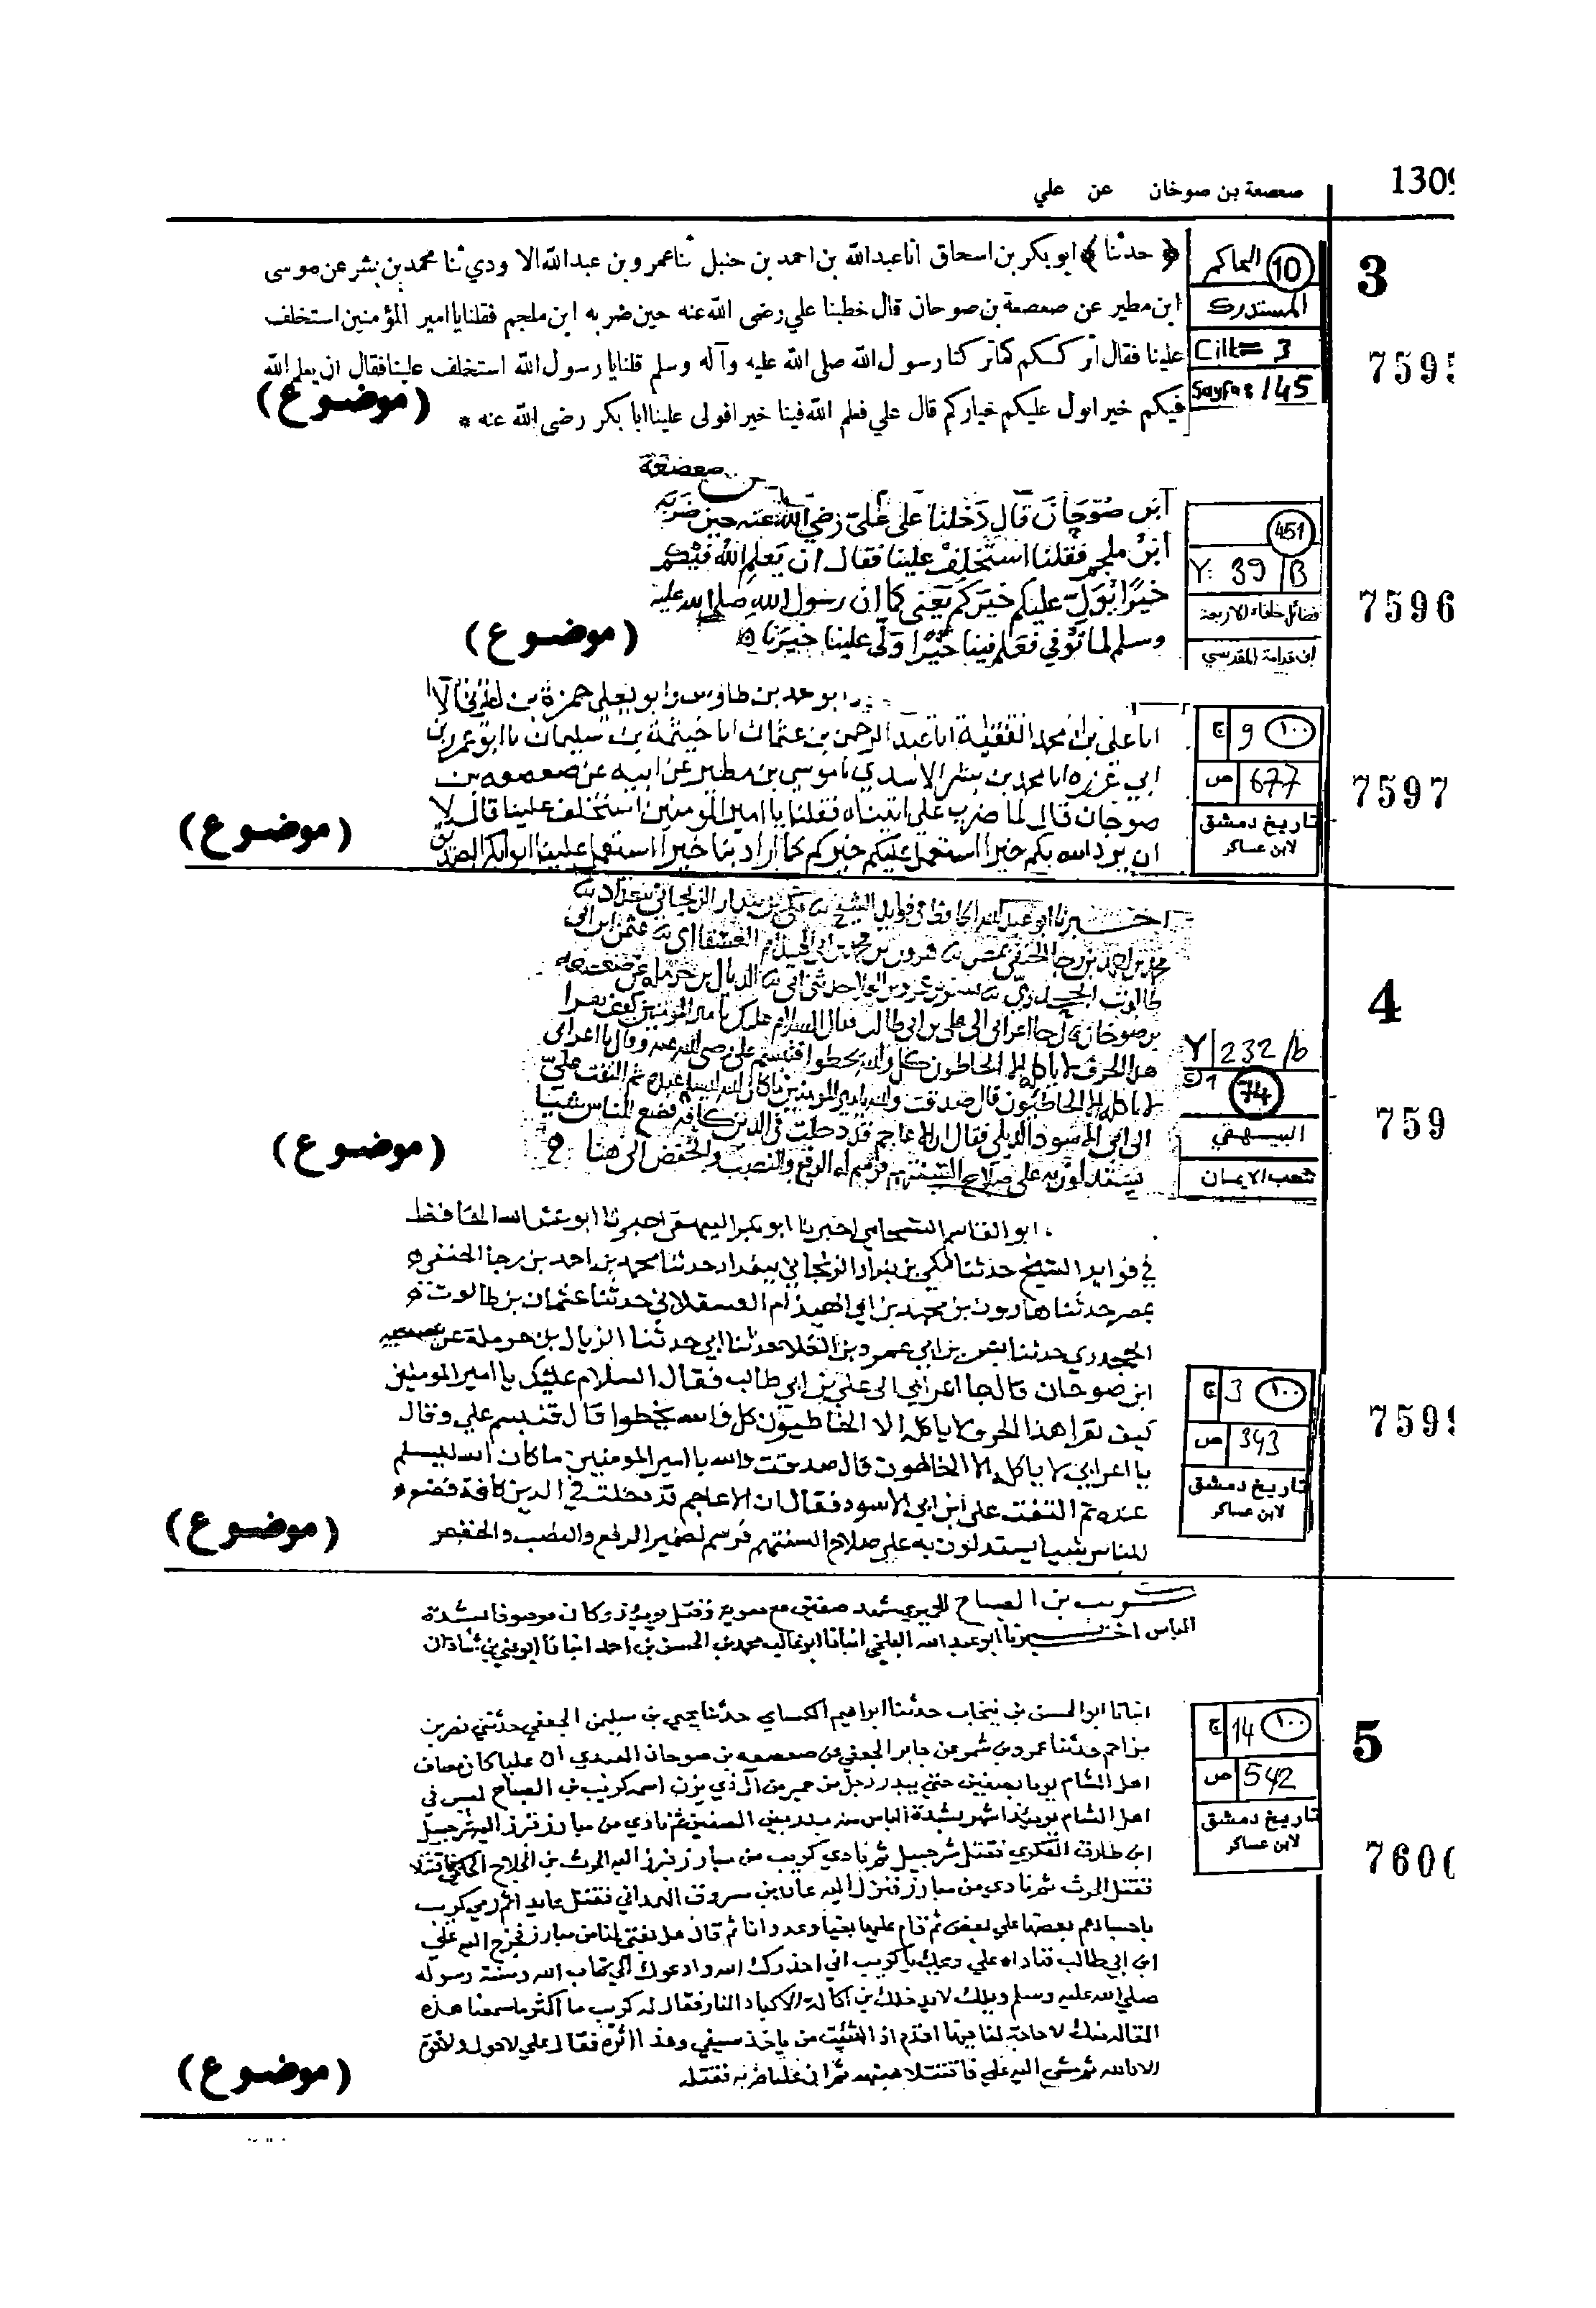 1309
صعصعة بن صوخان عن علي
3
الحاكم 10
المستدرك
Cilt= 3
Sayfa: 145
7595
﴿ حدثنا ﴾ ابو بكر بن اسحاق انا عبد الله بن احمد بن حنبل ثنا عمرو بن عبد الله الاودي ثنا محمد بن بشر عن موسى
ابن مطير عن صعصعة بن صوحان قال خطبنا علي رضى الله عنه حين ضربه ابن ملجم فقلنا يا امير المؤمنين استخلف
علينا فقال اتركم كما تركنا رسول الله صلى الله عليه وآله وسلم قلنا يا رسول الله استخلف علينا فقال ان يعلم الله
فيكم خيرا يول عليكم خياركم قال علي فعلم الله فينا خيرا فولى علينا ابا بكر رضى الله عنه *
(موضوع)
451
Y: 39/B
فضائل خلفاء الاربعة
ابن قدامة المقدسي
7596
صعصعة
ابن صوحان قال دخلنا على علي رضي الله عنه حين ضربه
ابن ملجم فقلنا استخلف علينا فقال ان يعلم الله فيكم
خيرا يول عليكم خيركم يعني كما ان رسول الله صلى الله عليه
وسلم لما توفي فعلم فينا خيرا ولى علينا خيرنا
(موضوع)
١٠٠ 9 ج
677 ص
تاريخ دمشق
لابن عساكر
7597
ابو محمد بن طاوس وابو يعلى حمزة بن
انا علي بن محمد الفقيه انا عبد الرحمن بن عثمان انا خيثمة بن سليمان نا ابو عمرو بن
ابي غرزه انا محمد بن بشر الاسدي نا موسى بن مطير عن ابيه عن صعصعه بن
صوحان قال لما ضرب علي اتيناه فقلنا يا امير المومنين استخلف علينا قال لا
ان يرد الله بكم خيرا استعمل عليكم خيركم كما اراد بنا خيرا استعمل علينا ابو بكر الصديق
(موضوع)
4
Y/232/b
74
البيهقي
شعب الايمان
759
اخبرنا ابو عبد الله الحافظ في فوايد الشيخ
بن صوخان قال جا اعرابي الى علي بن ابي طالب فقال السلام عليك يا امير المومنين كيف نقرا
هذا الحرف لا ياكله الا الخاطون كل والله يخطوا فتبسم علي رضي الله عنه وقال يا اعرابي
لا ياكله الا الخاطئون قال صدقت والله يا امير المومنين ما كان الله ليسلم عبده ثم التفت علي
الى ابي الاسود الديلي فقال ان الاعاجم قد دخلت في الدين كافه فضع للناس شيئا
يستدلون به على صلاح السنتهم فرسم له الرفع والنصب والخفض الى هنا
(موضوع)
١٠٠ 3 ج
343 ص
تاريخ دمشق
لابن عساكر
7599
ابو القاسم الشحامي اخبرنا ابو بكر البيهقي اخبرنا ابو عبد الله الحافظ
في فوايد الشيخ حدثنا مكي بن بندار الزنجاني ببغداد حدثنا محمد بن احمد بن رجا الحنفي
بمصر حدثنا هارون بن محمد بن ابي الهيذام العسقلاني حدثنا عثمان بن طالوت
الجحدري حدثنا بشر بن ابي عمرو بن العلا حدثنا ابي حدثنا الزيال بن حرملة عن صعصعه
ابن صوحان قال جا اعرابي الى علي بن ابي طالب فقال السلام عليك يا امير المومنين
كيف نقرا هذا الحرف لا ياكله الا الخاطيون كل والله يخطوا قال فتبسم علي وقال
يا اعرابي لا ياكله الا الخاطون قال صدقت والله يا امير المومنين ما كان الله ليسلم
عبده ثم التفت على ابن ابي الاسود فقال ان الاعاجم قد دخلت في الدين كافة فضع
للناس شيا يستدلون به على صلاح السنتهم فرسم لضمير الرفع والنصب والخفض
(موضوع)
كريب بن الصباح الحميري شهد صفين مع معوية وقتل يوميذ وكان موصوفا بشدة
الباس اخبرنا ابو عبد الله البلخي انبانا ابو غالب محمد بن الحسن بن احمد انبانا ابو علي بن شاذان
5
١٠٠ 14 ج
542 ص
تاريخ دمشق
لابن عساكر
7600
انبانا ابو الحسن بن نيخاب حدثنا ابراهيم الكساي حدثنا يحيى بن سليمن الجعفي حدثني نصر بن
مزاحم حدثنا عمرو بن شمر عن جابر الجعفي عن صعصعه بن صوحان العبدي ان عليا كان مصاف
اهل الشام يوما بصفين حتى يبدر رجل من حمير من آل ذي يزن اسمه كريب بن الصباح ليس في
اهل الشام يوميذ اشهر بشدة الباس منه يبدر بين الصفين ثم نادي من مبارز فبرز اليه شرحبيل
ابن طارق البكري فقتل شرحبيل ثم نادي كريب من مبارز فبرز اليه الحرث بن الجلاح الحكمي فاقتتلا
فقتل الحرث ثم نادي من مبارز فنزل اليه عابد بن مسروق الهمداني فقتل عابد ثم رمي كريب
باجسادهم بعضها على بعض ثم قام عليها بغيا وعدوانا ثم قال هل بقي لنا من مبارز فخرج اليه علي
ابن ابي طالب فناداه علي ويحك يا كريب اني احذرك الله وادعوك الى كتاب الله وسنة رسوله
صلى الله عليه وسلم ويلك لا يدخلك بن آكالة الاكباد النار فقال له كريب ما اكثر ما سمعنا هذه
المقاله منك لا حاجة لنا فيها اقدم اذا شئت من ياخذ سيفي وهذا اثره فقال علي لا حول ولا قوة
الا بالله ثم مشى اليه علي فاقتتلا هنيهة ثم ان عليا ضربه فقتله
(موضوع)